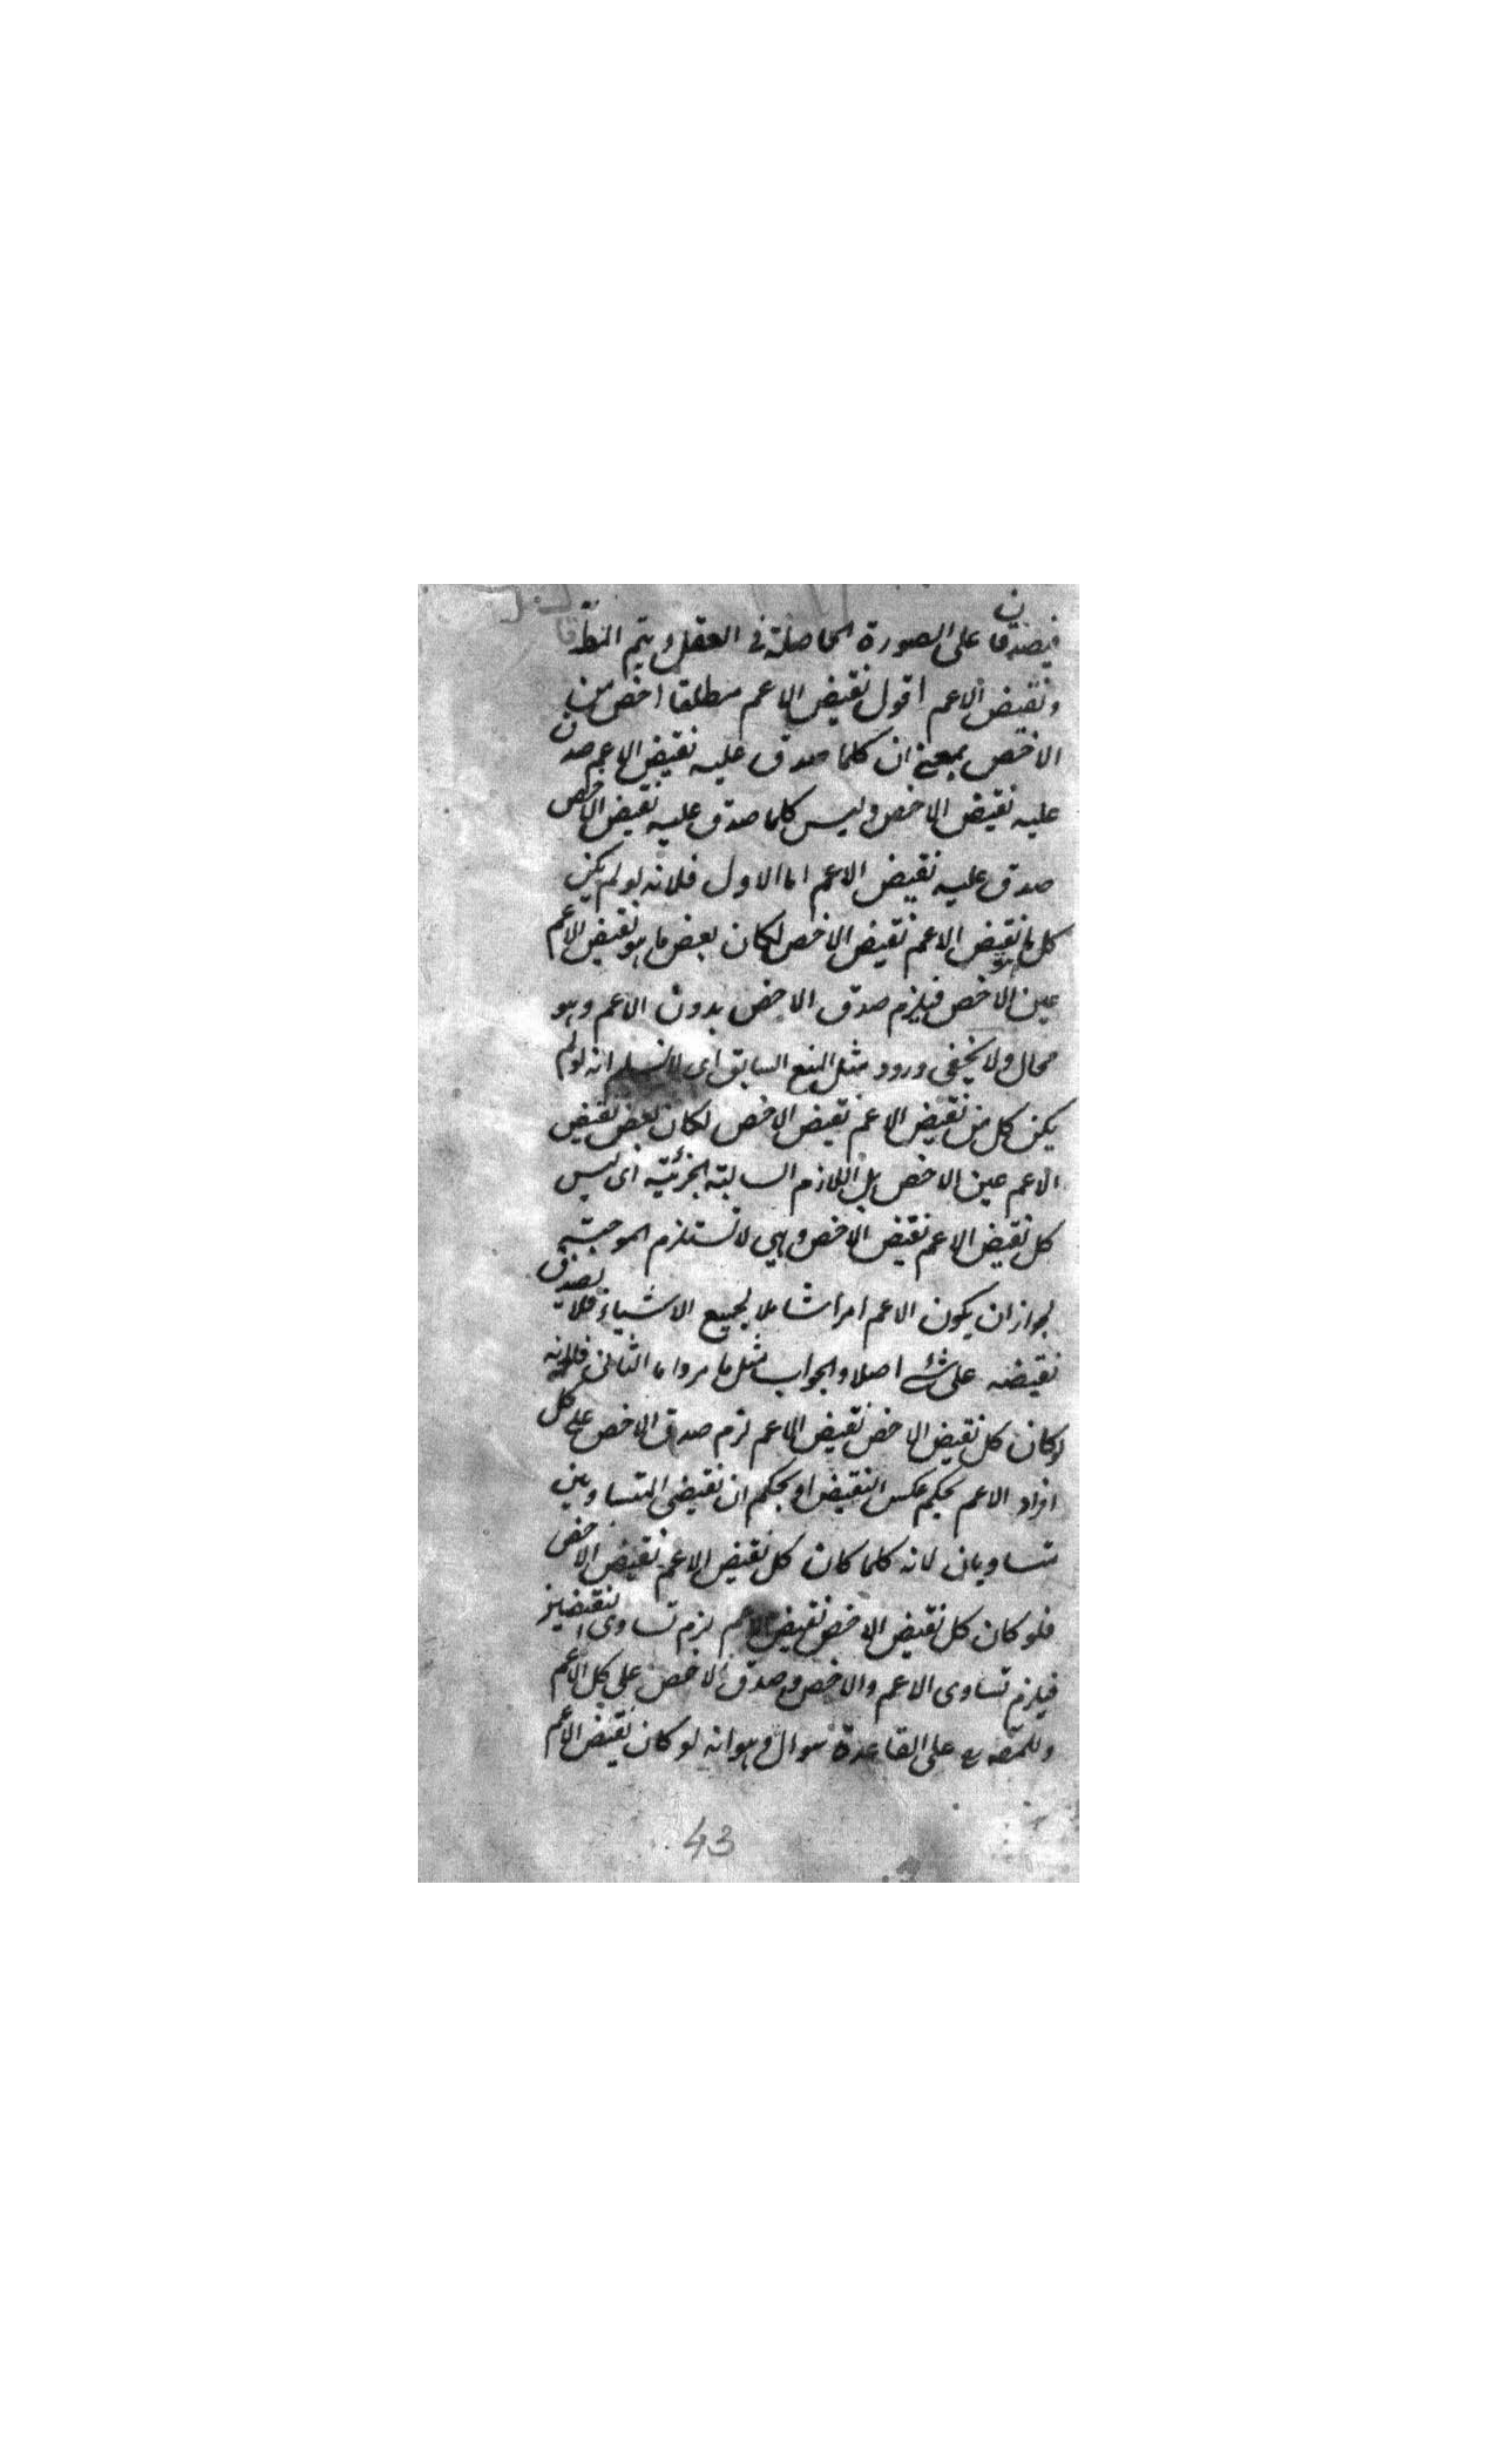 فيصدقان على الصورة الحاصلة فى العقل ويتم
ونقيض الاعم اقول نقيض الاعم مطلقا اخص من
الاخص بمعنى ان كلما صدق عليه نقيض الاعم صدق
عليه نقيض الاخص وليس كلما صدق عليه نقيض الاخص
صدق عليه نقيض الاعم اما الاول فلانه لو لم يكن
كل ما هو نقيض الاعم نقيض الاخص لكان بعض ما هو نقيض الاعم
عين الاخص فيلزم صدق الاخص بدون الاعم وهو
محال ولا يخفى ورود مثل المنع السابق اى لا نسلم انه لو لم
يكن كل من نقيض الاعم نقيض الاخص لكان بعض نقيض
الاعم عين الاخص بل اللازم السالبة الجزئية اى ليس
كل نقيض الاعم نقيض الاخص وهى لا تستلزم الموجبة
لجواز ان يكون الاعم امرا شاملا لجميع الاشياء فلا يصدق
نقيضه على شئ اصلا والجواب مثل ما مر واما الثانى فلانه
لو كان كل نقيض الاخص نقيض الاعم لزم صدق الاخص على كل
افراد الاعم بحكم عكس النقيض او بحكم ان نقيضى المتساويين
متساويان لانه كلما كان كل نقيض الاعم نقيض الاخص
فلو كان كل نقيض الاخص نقيض الاعم لزم تساوى النقيضين
فيلزم تساوى الاعم والاخص وصدق الاخص على كل الاعم
على القاعدة سوال وهو انه لو كان نقيض الاعم
43